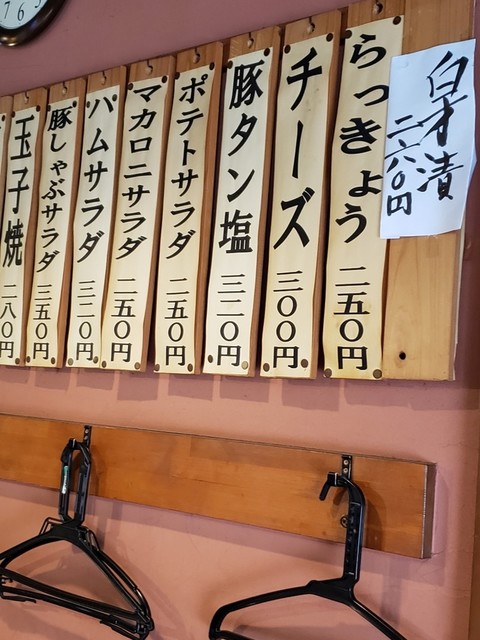 白才漬
二六〇円
らっきょう 二五〇円
チーズ 三〇〇円
豚タン塩 三二〇円
ポテトサラダ 二五〇円
マカロニサラダ 二五〇円
ハムサラダ 三二〇円
豚しゃぶサラダ 三五〇円
玉子焼 二八〇円
7
6
5